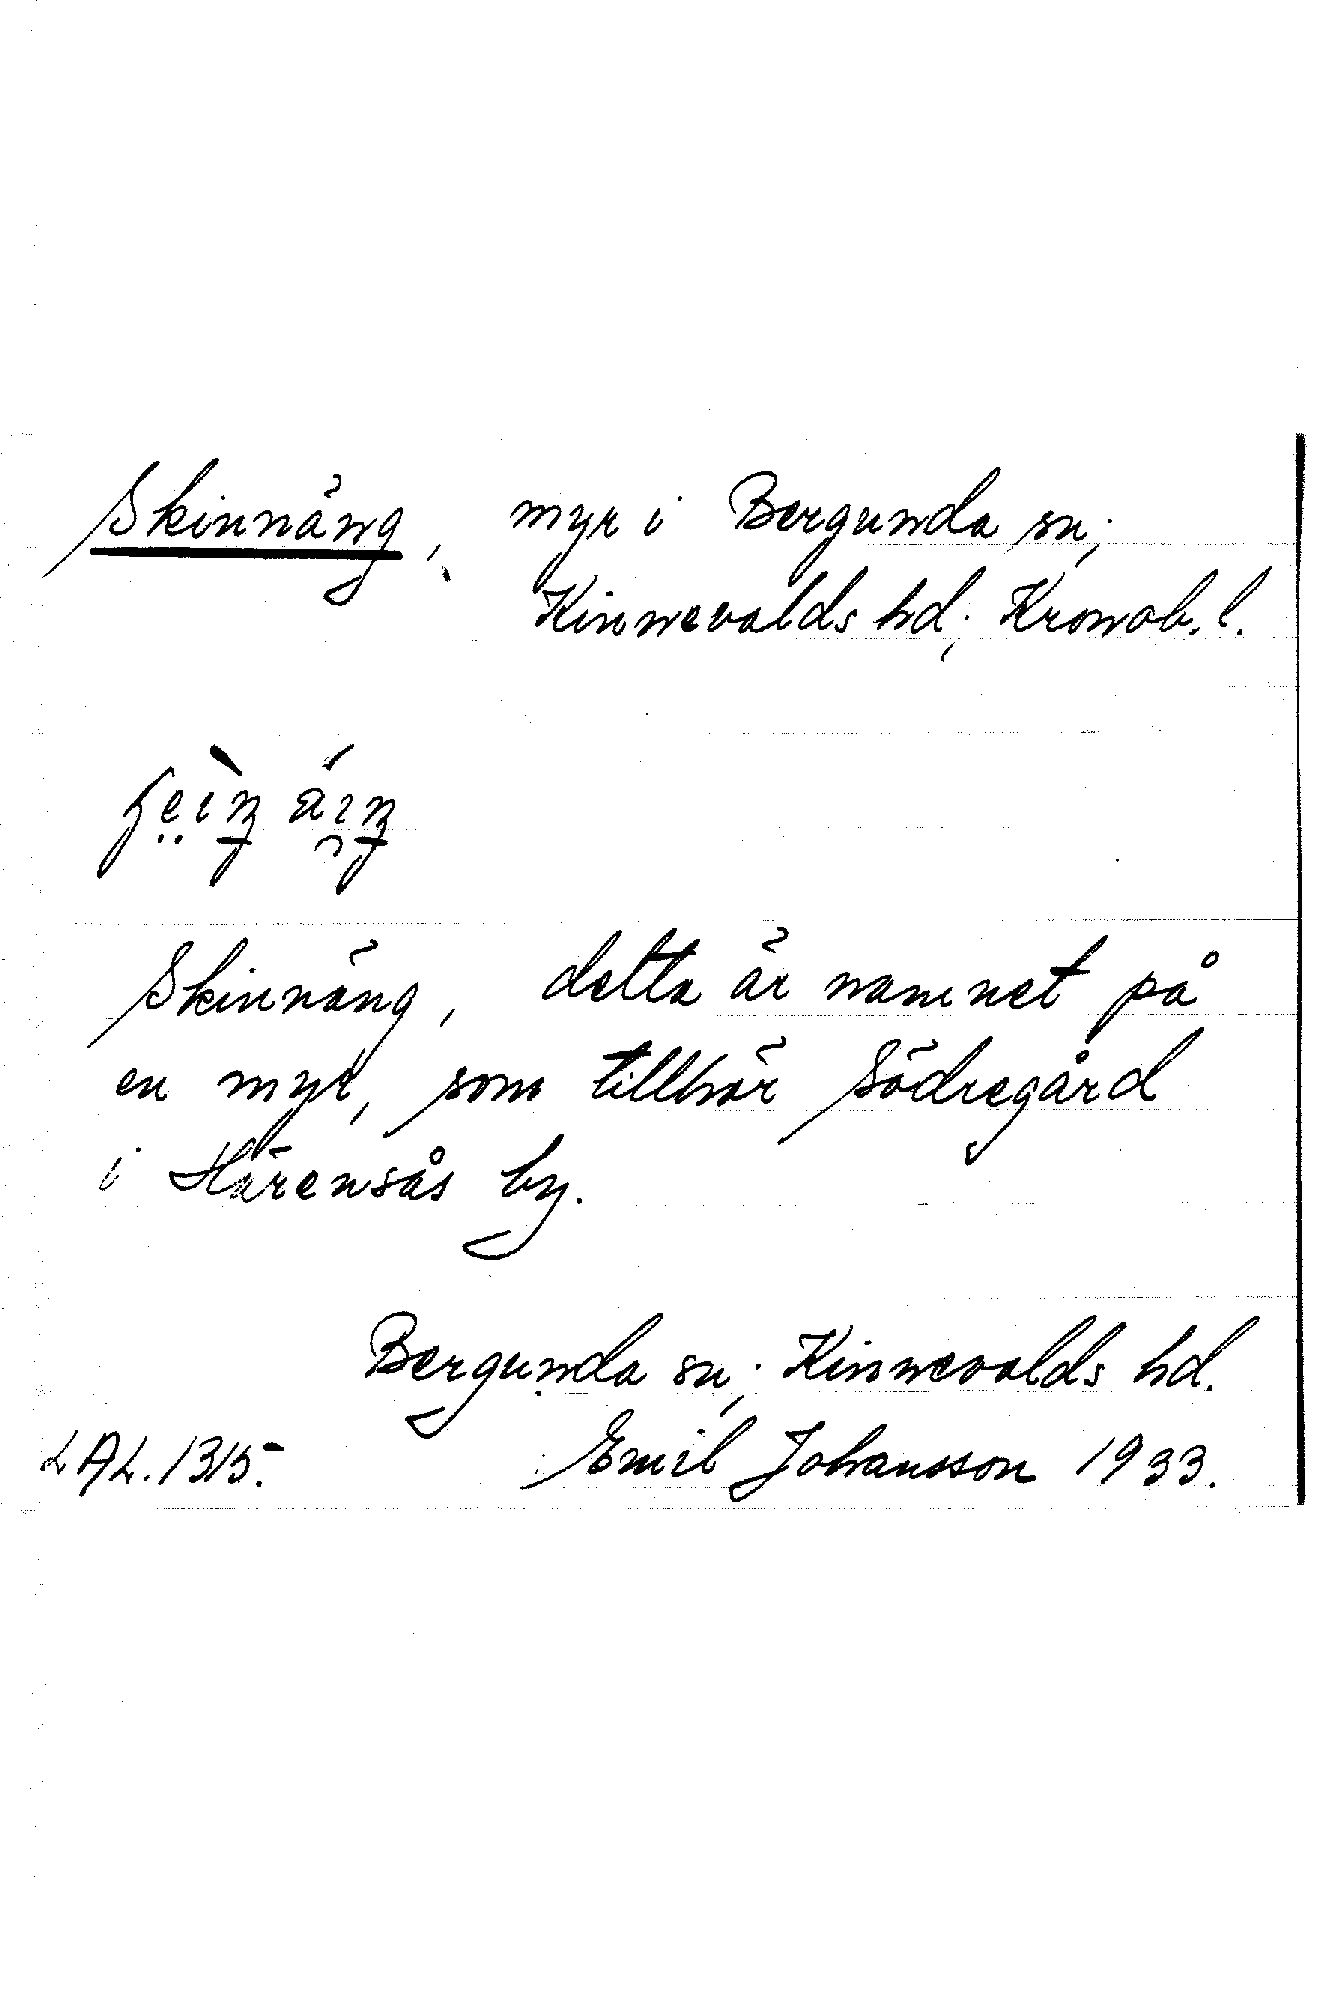 Skinnäng, myr i Bergunda sn,
Kinnevalds hd, Kronob. l.
Skinnäng, detta är namnet på
en myr, som tillhör Södregård
i Härensås by.
Bergunda sn, Kinnevalds hd.
LAL. 1315. Emil Johansson 1933.